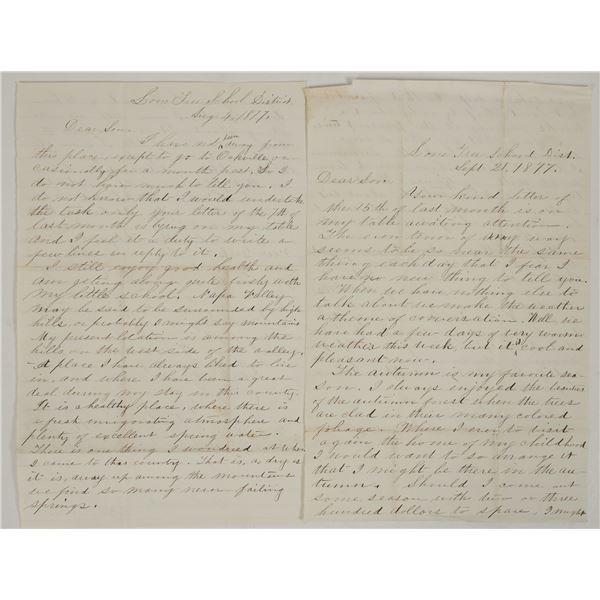 Lone Tree School District
Aug 4, 1877.
Dear Son,
I have not been away from
this place except to go to Oakville oc-
casionally for a month past. So I
do not have much to tell you. I
do not know that I would undertake
the task only your letter of the 7th of
last month is lying on my table
and I feel it a duty to write a
few lines in reply to it.
I still enjoy good health and
am getting along quite finely with
my little school. Napa Valley
may be said to be surrounded by high
hills, or probably I might say mountains
My present location is among the
hills on the west side of the valley.
A place I have always liked to live
in, and where I have been a great
deal during my stay in this country.
It is a healthy place, where there is
a fresh invigorating atmosphere and
plenty of excellent spring water.
There is one thing I wondered at when
I came to this country. That is, as dry as
it is, away up among the mountains
we find so many never failing
springs.
Lone Tree School Dist.
Sept 21, 1877.
Dear Son
Your kind letter of
the 15th of last month is on
my table awaiting attention.
The way
seems to be so near the same
thing each day that I fear I
have no new thing to tell you.
When we have nothing else to
talk about we make the weather
a theme of conversation. Well we
have had a few days of very warm
weather this week, but it's cool and
pleasant now.
The autumn is my favorite sea-
son. I always enjoyed the beauties
of the autumn forest when the trees
are clad in their many colored
foliage. Where I ever to visit
again the home of my childhood
I would want to so arrange it
that I might be there in the au-
tumn. Should I come out
some season with two or three
hundred dollars to spare, I might